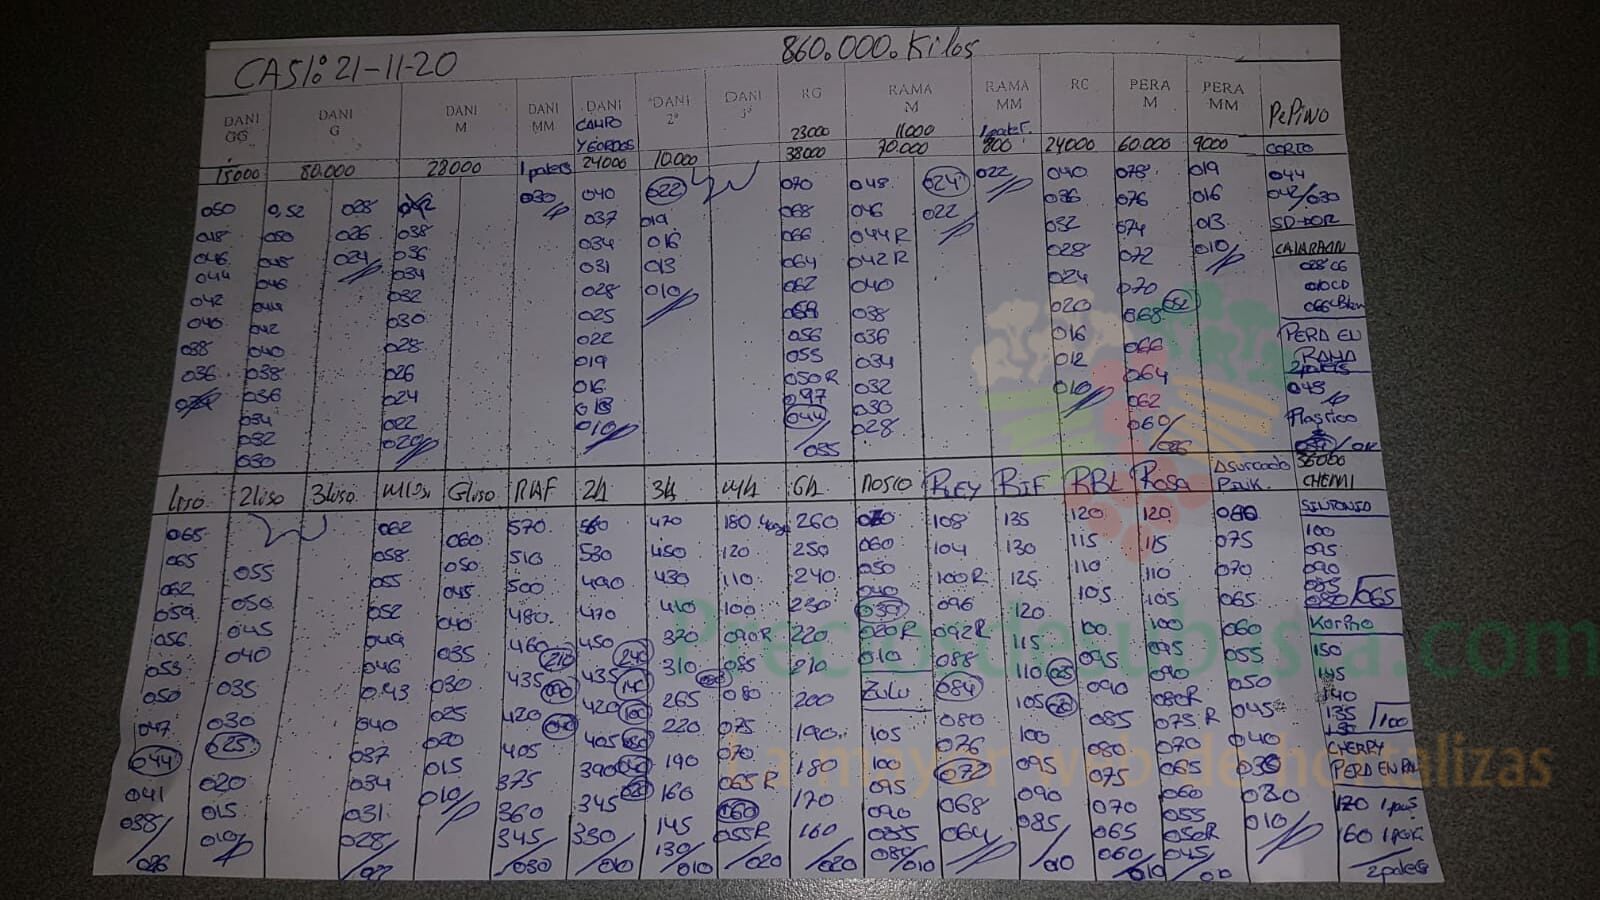 CASI: 21-11-20 860.000. Kilos
DANI GG DANI G DANI M DANI MM DANI CAMPO Y GORDOS DANI 2ª DANI 3ª RG RAMA M RAMA MM RC PERA M PERA MM PePiNO
23000 11000 1 palet.
15000 80.000 28000 1 palets 24000 10.000 38000 30.000 800 24000 60.000 9000 CORTO
050 0,52 028 038 030 040 022 070 048 024 022 040 078 019 044
048 050 026 036 037 019 068 046 022 036 076 016 042/030
046 048 024 034 034 016 066 044R 032 074 013
044 046 032 031 013 064 042R 028 072 010
042 044 030 028 010 062 040 024 070 028 CG
040 042 028 025 038 020 068 052 010 CD
038 040 026 022 056 036 016 066
036 038 024 019 055 034 012 064 PERA EN
036 022 016 050R 032 010 062 RAMA
034 020 013 030 060/026 2palets
032 010 044 028 045
030 /035 Plastico
36000
Liso 2Liso 3Liso GLiso RAF 2ª 3ª 4ª Gª MOSCO REY RIF RBL Rosa Asurcado PINK CHERRI
SINTONIO
065 062 060 570 470 180 260 108 135 120 120 100
065 055 058 050 510 530 450 120 250 060 104 130 115 115 075 095
062 050 055 045 500 490 430 110 240 050 100R 125 110 110 070 090
059 045 052 040 480 470 410 100 230 040 096 120 105 105 065 085
056 040 049 035 460 210 450 240 320 090R 220 030 092R 115 100 100 060 080/065
053 035 046 030 435 090 435 140 310 085 210 020R 088 110 095 095 055 Korino
050 030 043 025 420 420 100 265 080 200 010 084 105 090 090 050 150
047 025 040 020 405 405 220 075 190 Zulu 080 100 085 080R 045 145
044 020 037 015 375 390 190 070 180 105 076 095 080 075R 040 140
041 015 034 010 360 345 160 065R 170 100 072 090 075 070 135 /100
038/026 010 031 345/030 330/010 145 060 160/020 095 068 085/010 070 065 030 CHERRY
028 130/010 055R/020 090 064 065 060 010 PERA EN RA
085 060/010 055 170 1 palet
080/010 050R 160 1 palet
045/010 /2palets
Preciosdesubasta.com
La mayor web de hortalizas